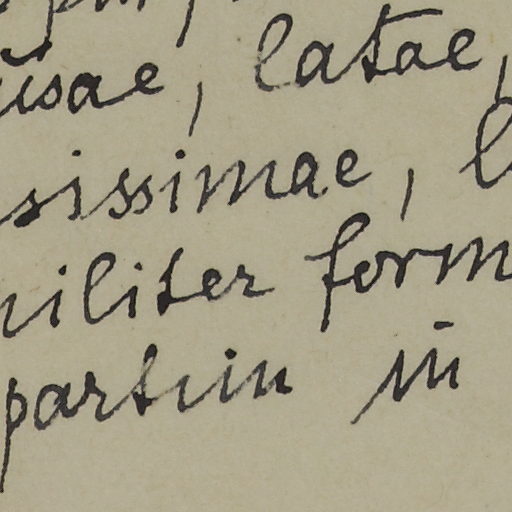 latae,
sissimae,
niliter form
partim in